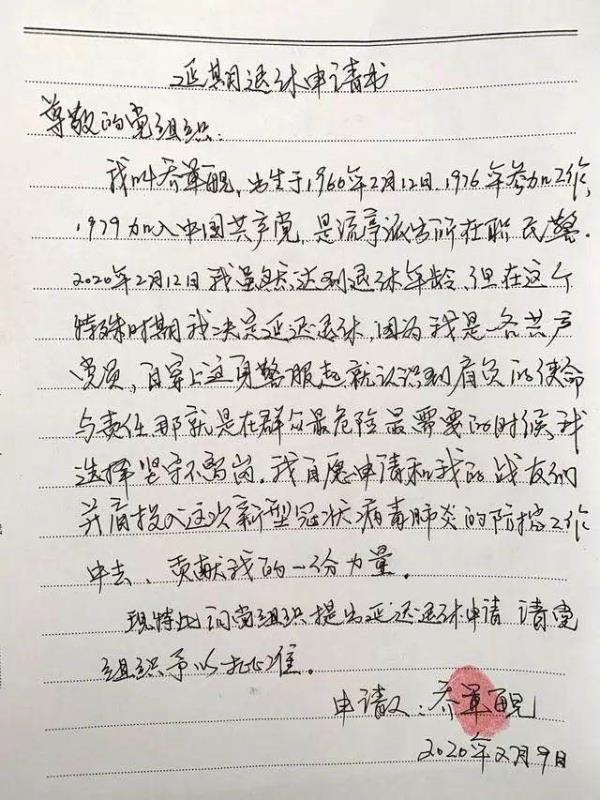 延期退休申请书
尊敬的党组织:
我叫乔,出生于1960年2月12日,1976年参加工作,
1979加入中国共产党,是流亭派出所在职民警.
2020年2月12日我虽然达到退休年龄,但在这个
特殊时期我决定延迟退休,因为我是一名共产
党员,自穿上这身警服起就认识到肩负的使命
与责任那就是在群众最危险最需要的时候,我
选择坚守不离岗.我自愿申请和我的战友们
并肩投入这次新型冠状病毒肺炎的防控工作
中去、贡献我的一份力量。
现特此向党组织提出延迟退休申请 请党
组织予以批准.
申请人:乔
2020年2月9日